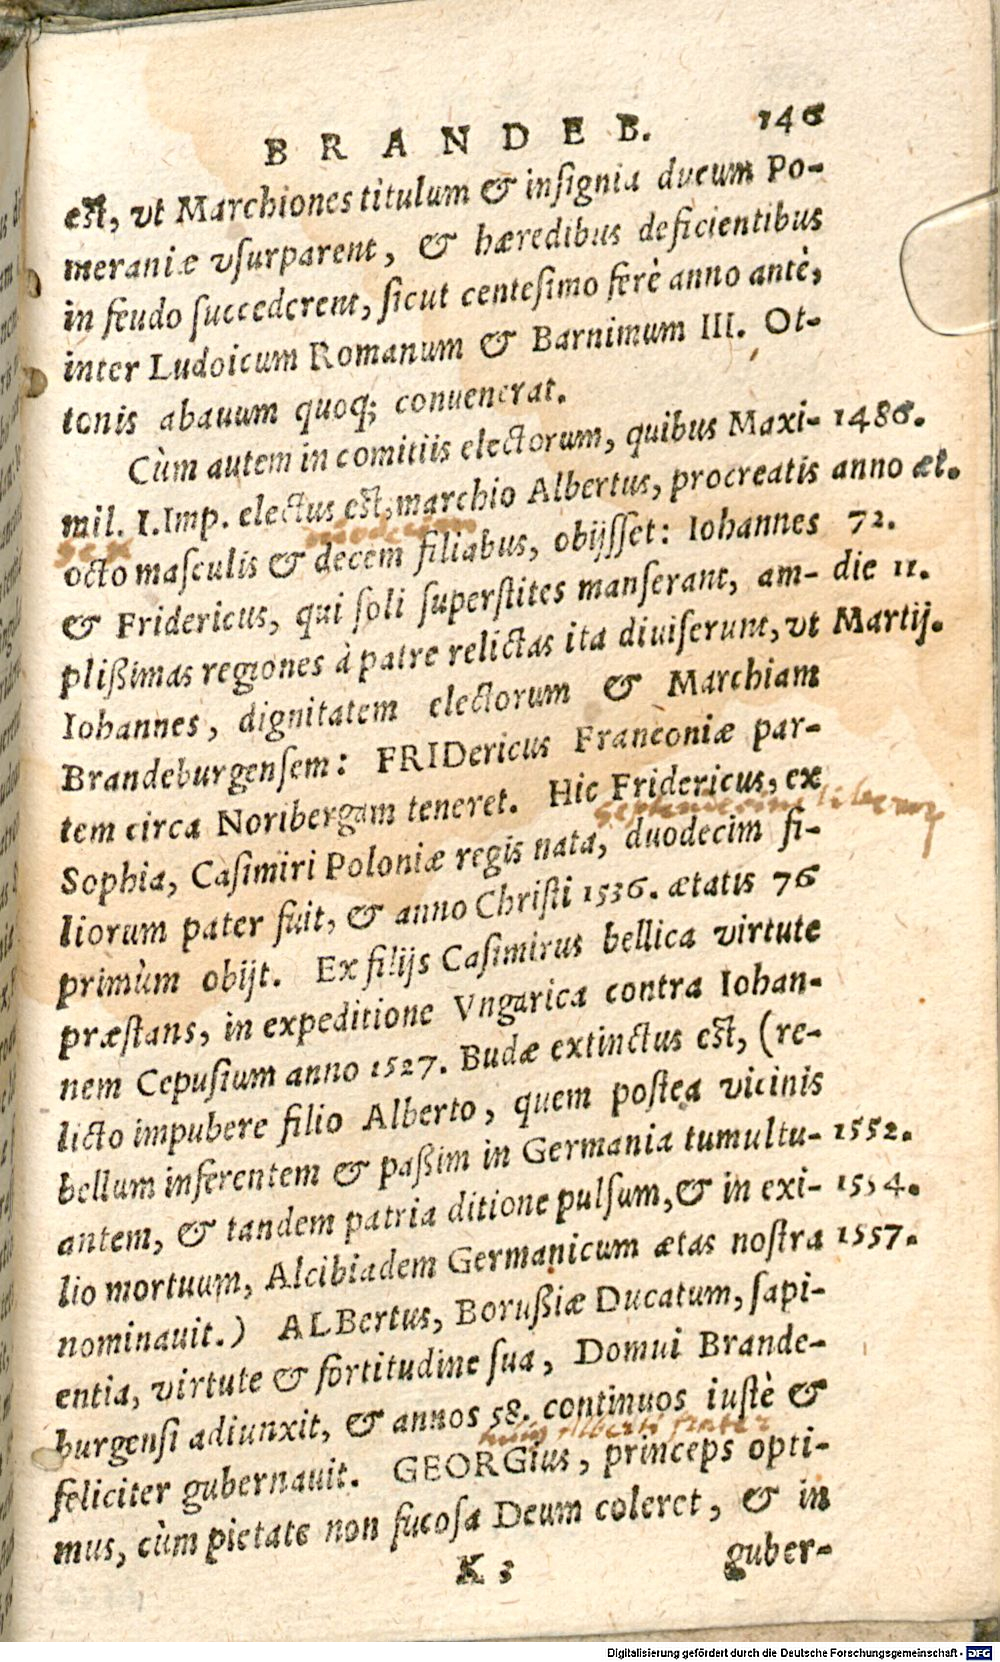 BRANDEB. 146
est, vt Marchiones titulum & insignia ducum Po-
meraniæ vsurparent, & hæredibus deficientibus
in feudo succederent, sicut centesimo ferè anno antè,
inter Ludoicum Romanum & Barnimum III. Ot-
tonis abauum quoq; conuenerat.
Cùm autem in comitiis electorum, quibus Maxi- 1486.
mil. I. Imp. electus est, marchio Albertus, procreatis anno æt.
sex undecim
octo masculis & decem filiabus, obijsset: Iohannes 72.
& Fridericus, qui soli superstites manserant, am- die 11.
plißimas regiones à patre relictas ita diuiserunt, vt Martij.
Iohannes, dignitatem electorum & Marchiam
Brandeburgensem: FRIDericus Franconiæ par-
tem circa Noribergam teneret. Hic Fridericus, ex
septendecim liberorum
Sophia, Casimiri Poloniæ regis nata, duodecim fi-
liorum pater fuit, & anno Christi 1536. ætatis 76
primùm obijt. Ex filijs Casimirus bellica virtute
præstans, in expeditione Vngarica contra Iohan-
nem Cepusium anno 1527. Budæ extinctus est, (re-
licto impubere filio Alberto, quem postea vicinis
bellum inferentem & paßim in Germania tumultu- 1552.
antem, & tandem patria ditione pulsum, & in exi- 1554.
lio mortuum, Alcibiadem Germanicum ætas nostra 1557.
nominauit.) ALBertus, Borußiæ Ducatum, sapi-
entia, virtute & fortitudine sua, Domui Brande-
burgensi adiunxit, & annos 58. continuos iustè &
huius Alberti frater
feliciter gubernauit. GEORGius, princeps opti-
mus, cùm pietate non fucosa Deum coleret, & in
K 3 guber-
Digitalisierung gefördert durch die Deutsche Forschungsgemeinschaft - DFG